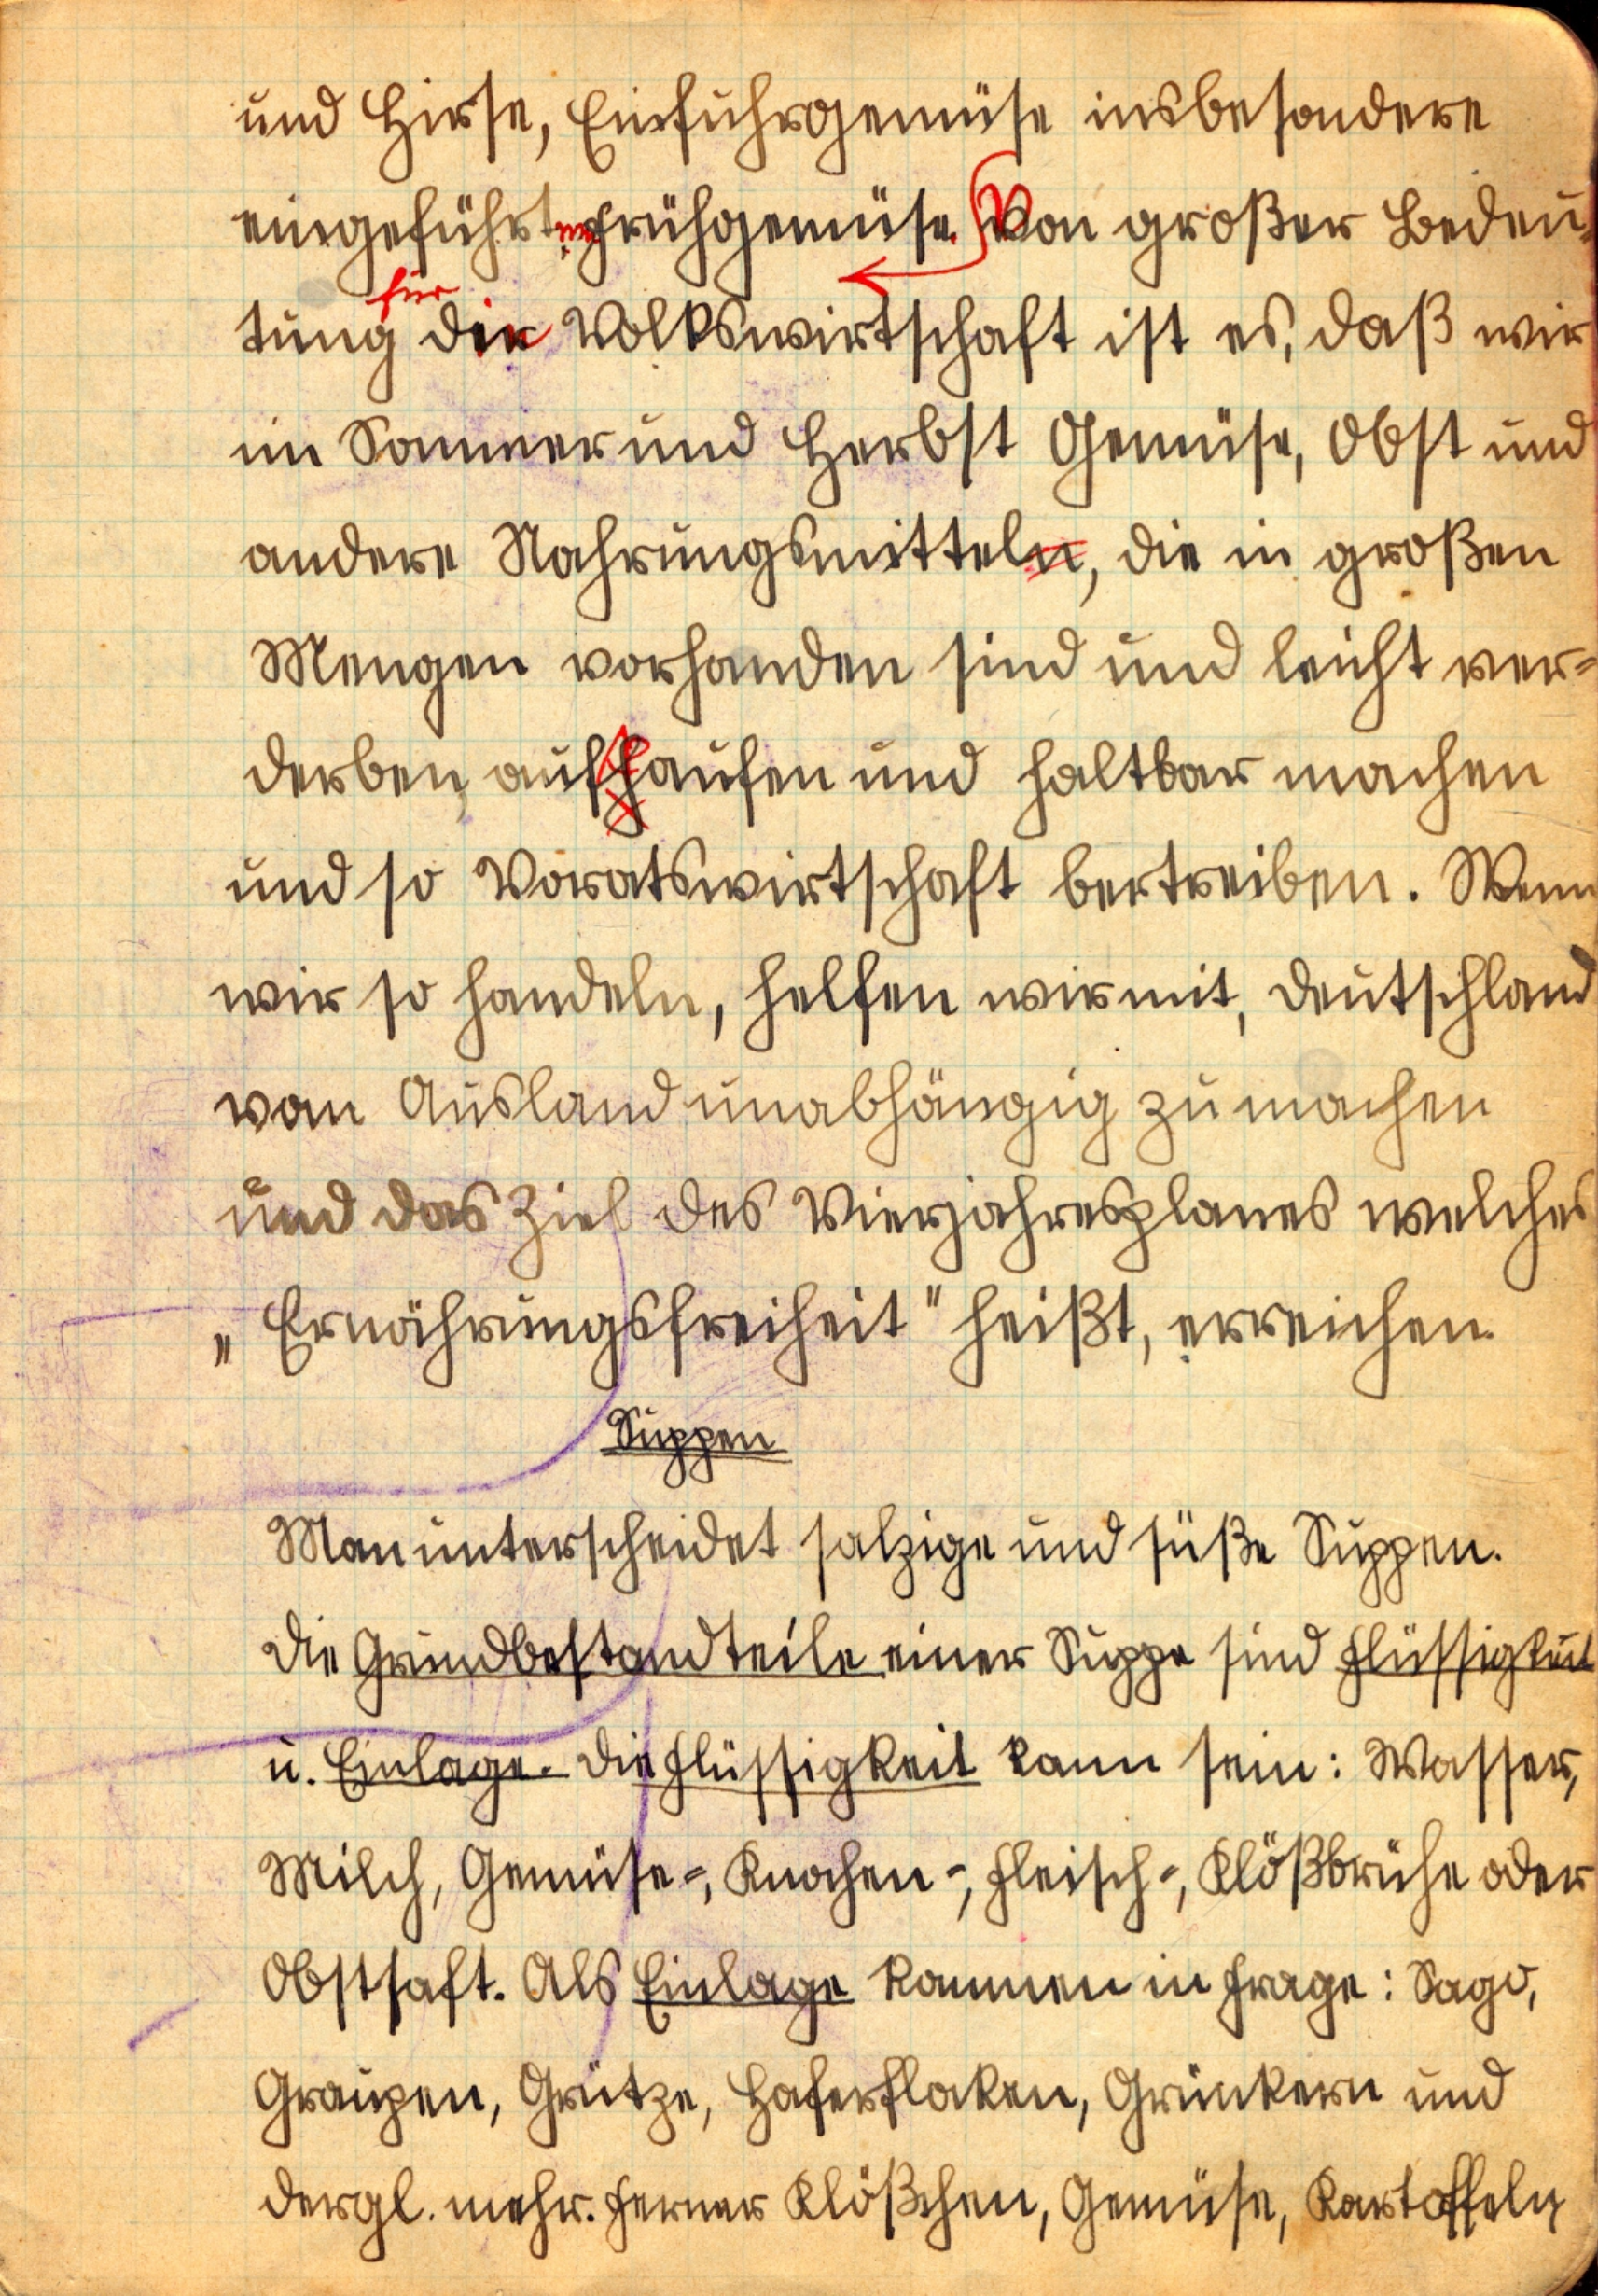 und Hirse, Einfuhrgemüse insbesondere
eingeführtes Frühgemüse. Von großer Bedeu-
tung für die Volkswirtschaft ist es, daß wir
im Sommer und Herbst Gemüse, Obst und
andere Nahrungsmitteln, die in großen
Mengen vorhanden sind und leicht ver=
derben, aufkaufen und haltbar machen
und so Voratswirtschaft bertreiben. Wenn
wir so handeln, helfen wir mit, Deutschland
vom Ausland unabhängig zu machen
und das Ziel des Vierjahresplanes welches
„Ernährungsfreiheit" heißt, erreichen.
Suppen
Man unterscheidet salzige und süße Suppen.
Die Grundbestandteile einer Suppe sind Flüssigkeit
u. Einlage. Die Flüssigkeit kann sein: Wasser,
Milch, Gemüse=, Knochen=, Fleisch=, Klößbrühe oder
Obstsaft. Als Einlage kommen in Frage: Sago,
Graupen, Grütze, Haferfloken, Grünkern und
dergl. mehr. Ferner Klößchen, Gemüse, Kartoffeln